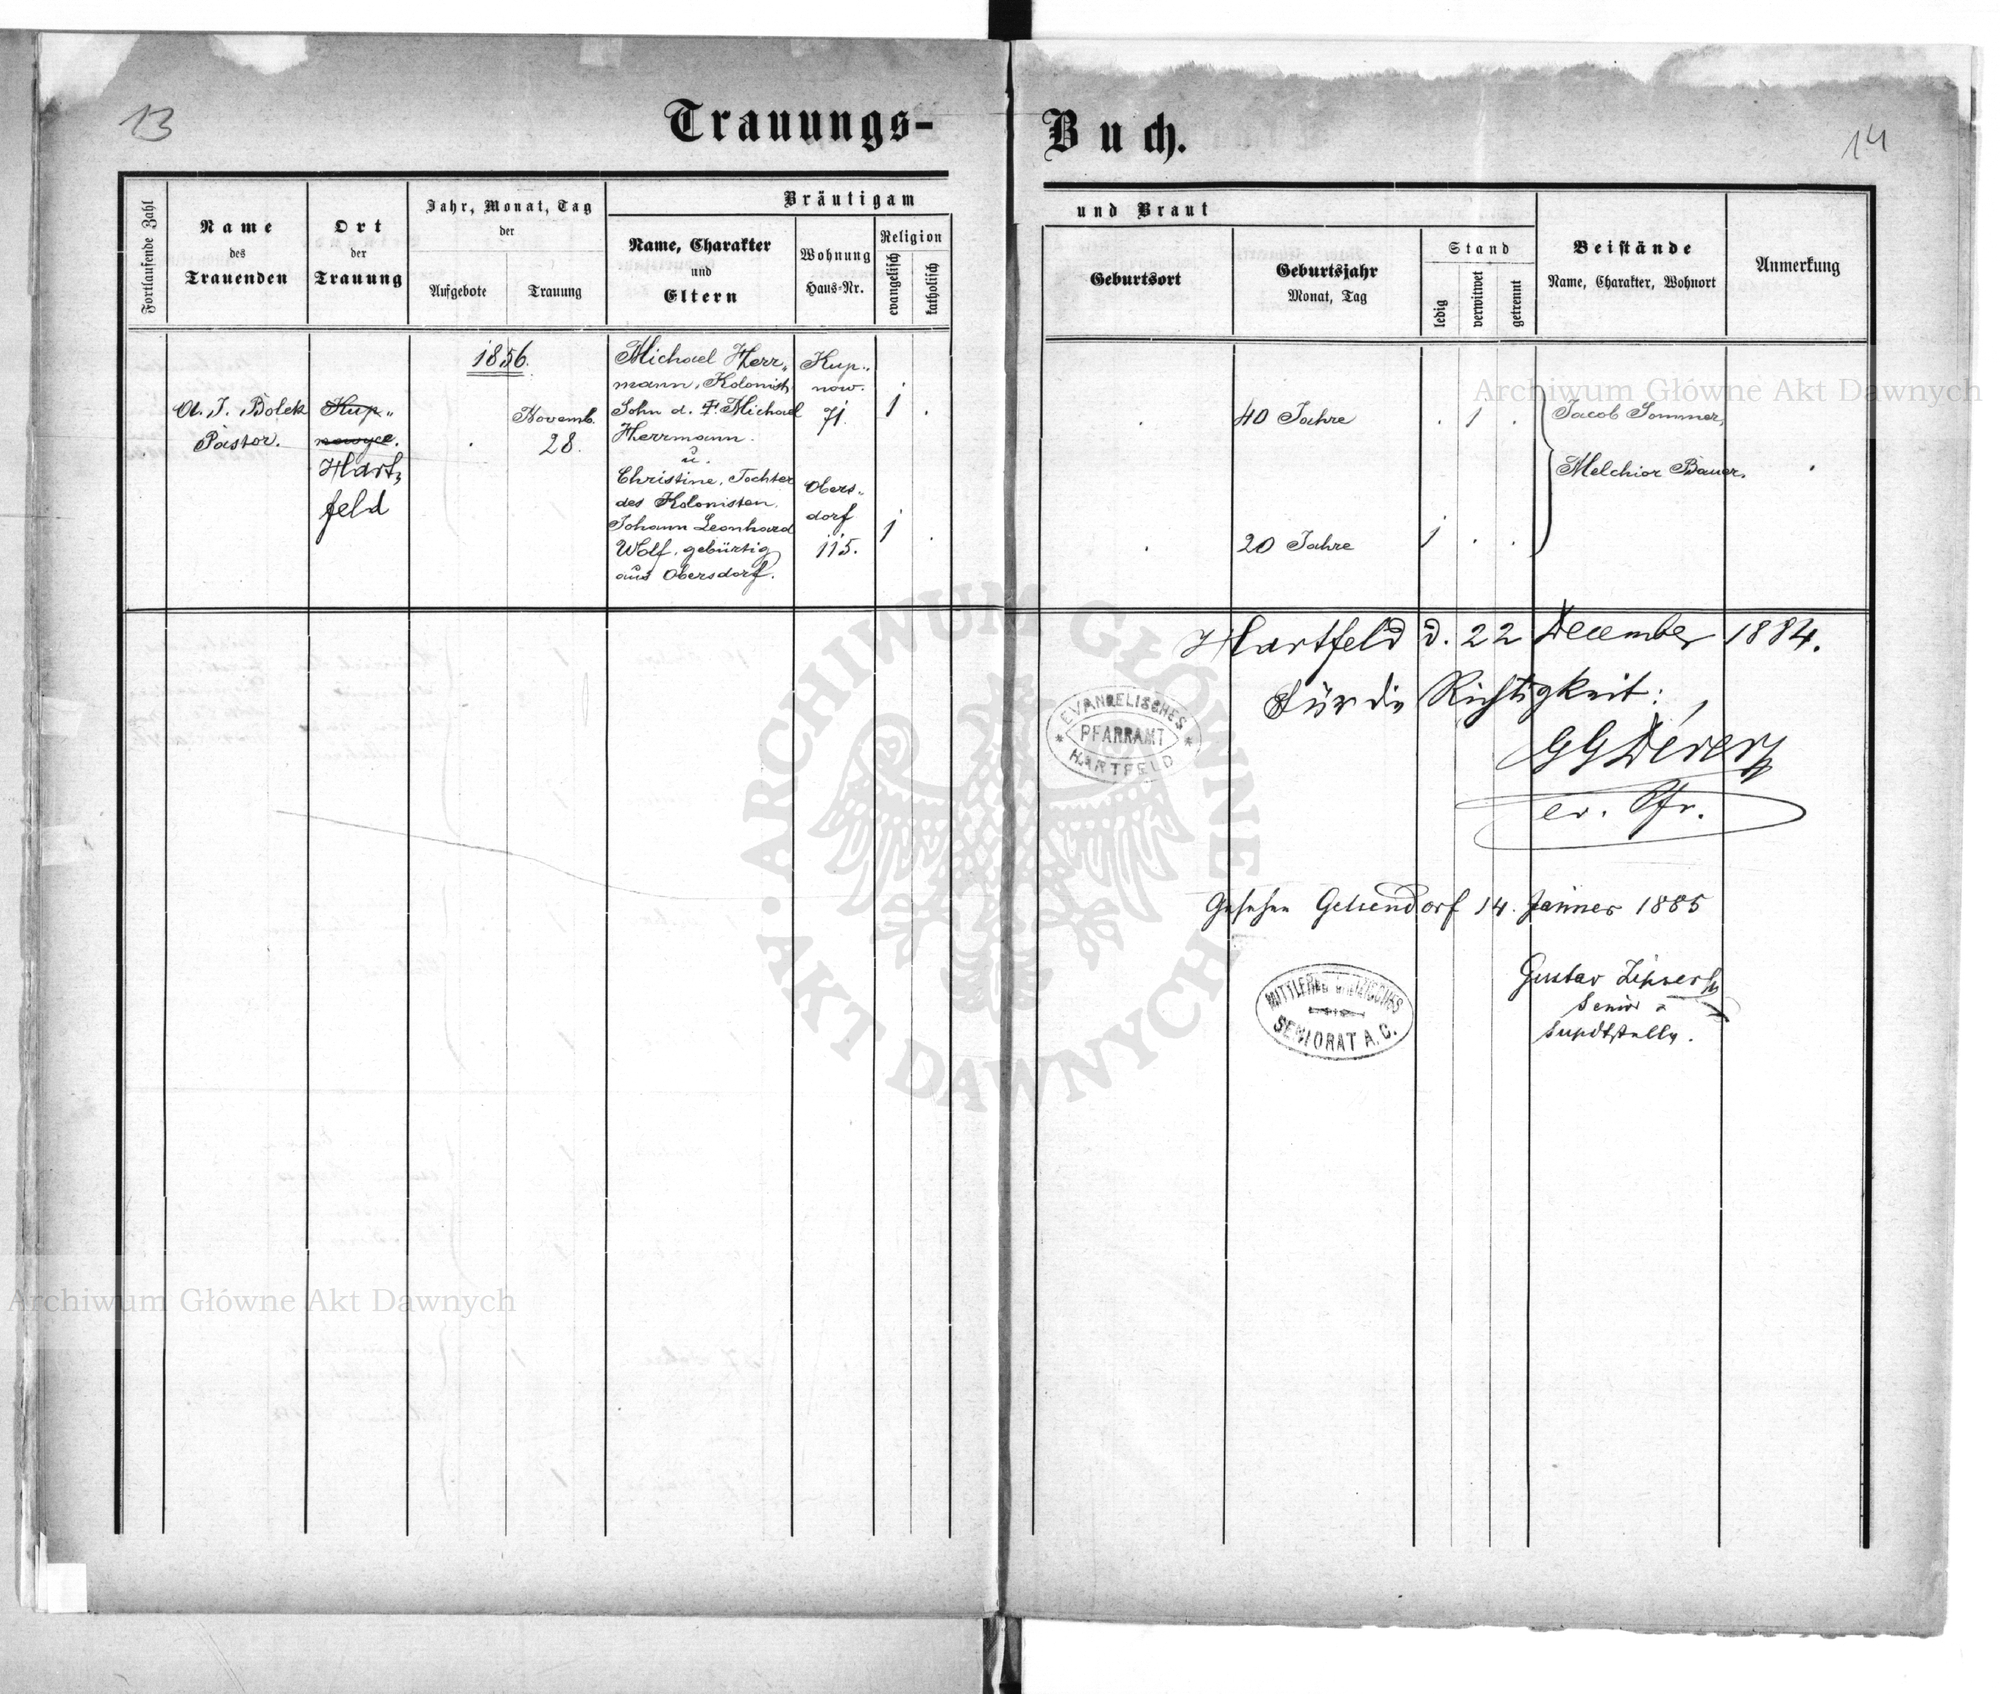 13
Trauungs-Buch.
14
Fortlaufende Zahl
Name
des
Trauenden
Ort
der
Trauung
Jahr, Monat, Tag
der
Aufgebote
Trauung
Bräutigam
Name, Charakter
und
Eltern
Wohnung
Haus-Nr.
Religion
evangelisch
katholisch
und Braut
Geburtsort
Geburtsjahr
Monat, Tag
Stand
ledig
verwitwet
getrennt
Beistände
Name, Charakter, Wohnort
Anmerkung
1856.
A. J. Bolek
Pastor.
Kup„
Hart„
feld
Novemb.
28.
Michael Herr„
mann, Kolonist
Sohn d. Michael
Herrmann.
u.
Christine, Tochter
des Kolonisten,
Johann Leonhard
Wolf, gebürtig
aus Obersdorf.
Kup„
now.
71.
Obers„
dorf
115.
1 .
1 .
. 40 Jahre . 1 .
. 20 Jahre 1 . .
Jacob Sommer,
Melchior Bauer.
Hartfeld d. 22 December 1884.
Für die Richtigkeit:
ev. Pfr.
EVANGELISCHES
PFARRAMT
HARTFELD
Gesehen Gelsendorf 14. Jänner 1885
Gustav Zipser
Senior
MITTLERES GALIZISCHES
SENIORAT A. C.
Archiwum Główne Akt Dawnych
ARCHIWUM GŁÓWNE AKT DAWNYCH
Archiwum Główne Akt Dawnych